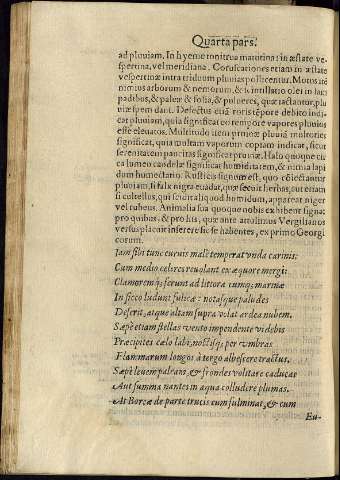 Quarta pars.
ad pluuiam. In hyeme tonitrua matutina: in æstate ve-
spertina, vel meridiana. Coruscationes etiam in æstate
vespertinæ intra triduum pluuias pollicentur. Motus ité
nimius arborum & nemorum, & si instillatio olei in lam
padibus, & paleæ & folia, & pulueres, quæ iactantur, plu
uiæ spem dant. Defectus etiã roris tẽpore debito indi-
cat pluuiam, quia significat eo tempore vapores pluuios
esse eleuatos. Multitudo item pruinæ pluuiã multoties
significat, quia multam vaporum copiam indicat, sicut
serenitatem paucitas significat pruinæ. Halo quoque cir
ca lumen candelæ significat humiditatem, & nimia lapi
dum humectatio. Rusticis signum est, quo cõiectantur
pluuiam, si falx nigra euadat, quæ secuit herbas, aut etiam
si cultellus, qui scindit aliquod humidum, appareat niger
vel rubeus. Animalia sua quoque nobis exhibent signa:
pro quibus, & pro his, quæ ante attulimus Vergilianos
versus placuit inserere sic se habentes, ex primo Georgi
corum.
Iam sibi tunc curuis malè temperat vnda carinis:
Cum medio celeres reuolant ex æquore mergi:
Clamoremq; ferunt ad littora: cumq; marinæ
In sicco ludunt fulicæ: notasque paludes
Deserit, atque altam supra volat ardea nubem.
Sæpe etiam stellas vento impendente videbis
Præcipites cælo labi, noctisq; per vmbras
Flammarum longos à tergo albescere tractus.
Sæpè leuem paleam, & frondes volitare caducas
Aut summa nantes in aqua colludere plumas.
At Boreæ de parte trucis cum fulminat, & cum
Eu-